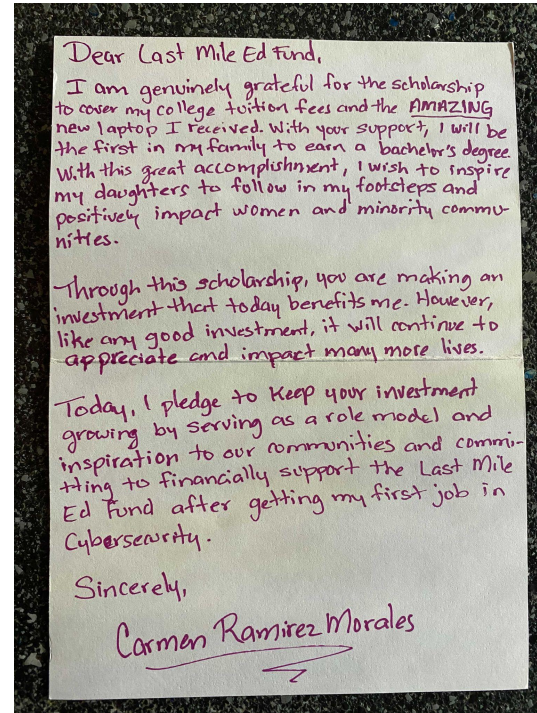 Dear Last Mile Ed Fund,
I am genuinely grateful for the scholarship
to cover my college tuition fees and the AMAZING
new laptop I received. With your support, I will be
the first in my family to earn a bachelor's degree.
With this great accomplishment, I wish to inspire
my daughters to follow in my footsteps and
positively impact women and minority commu-
nities.
Through this scholarship, you are making an
investment that today benefits me. However,
like any good investment, it will continue to
appreciate and impact many more lives.
Today, I pledge to keep your investment
growing by serving as a role model and
inspiration to our communities and commi-
tting to financially support the Last Mile
Ed Fund after getting my first job in
Cybersecurity.
Sincerely,
Carmen Ramirez Morales